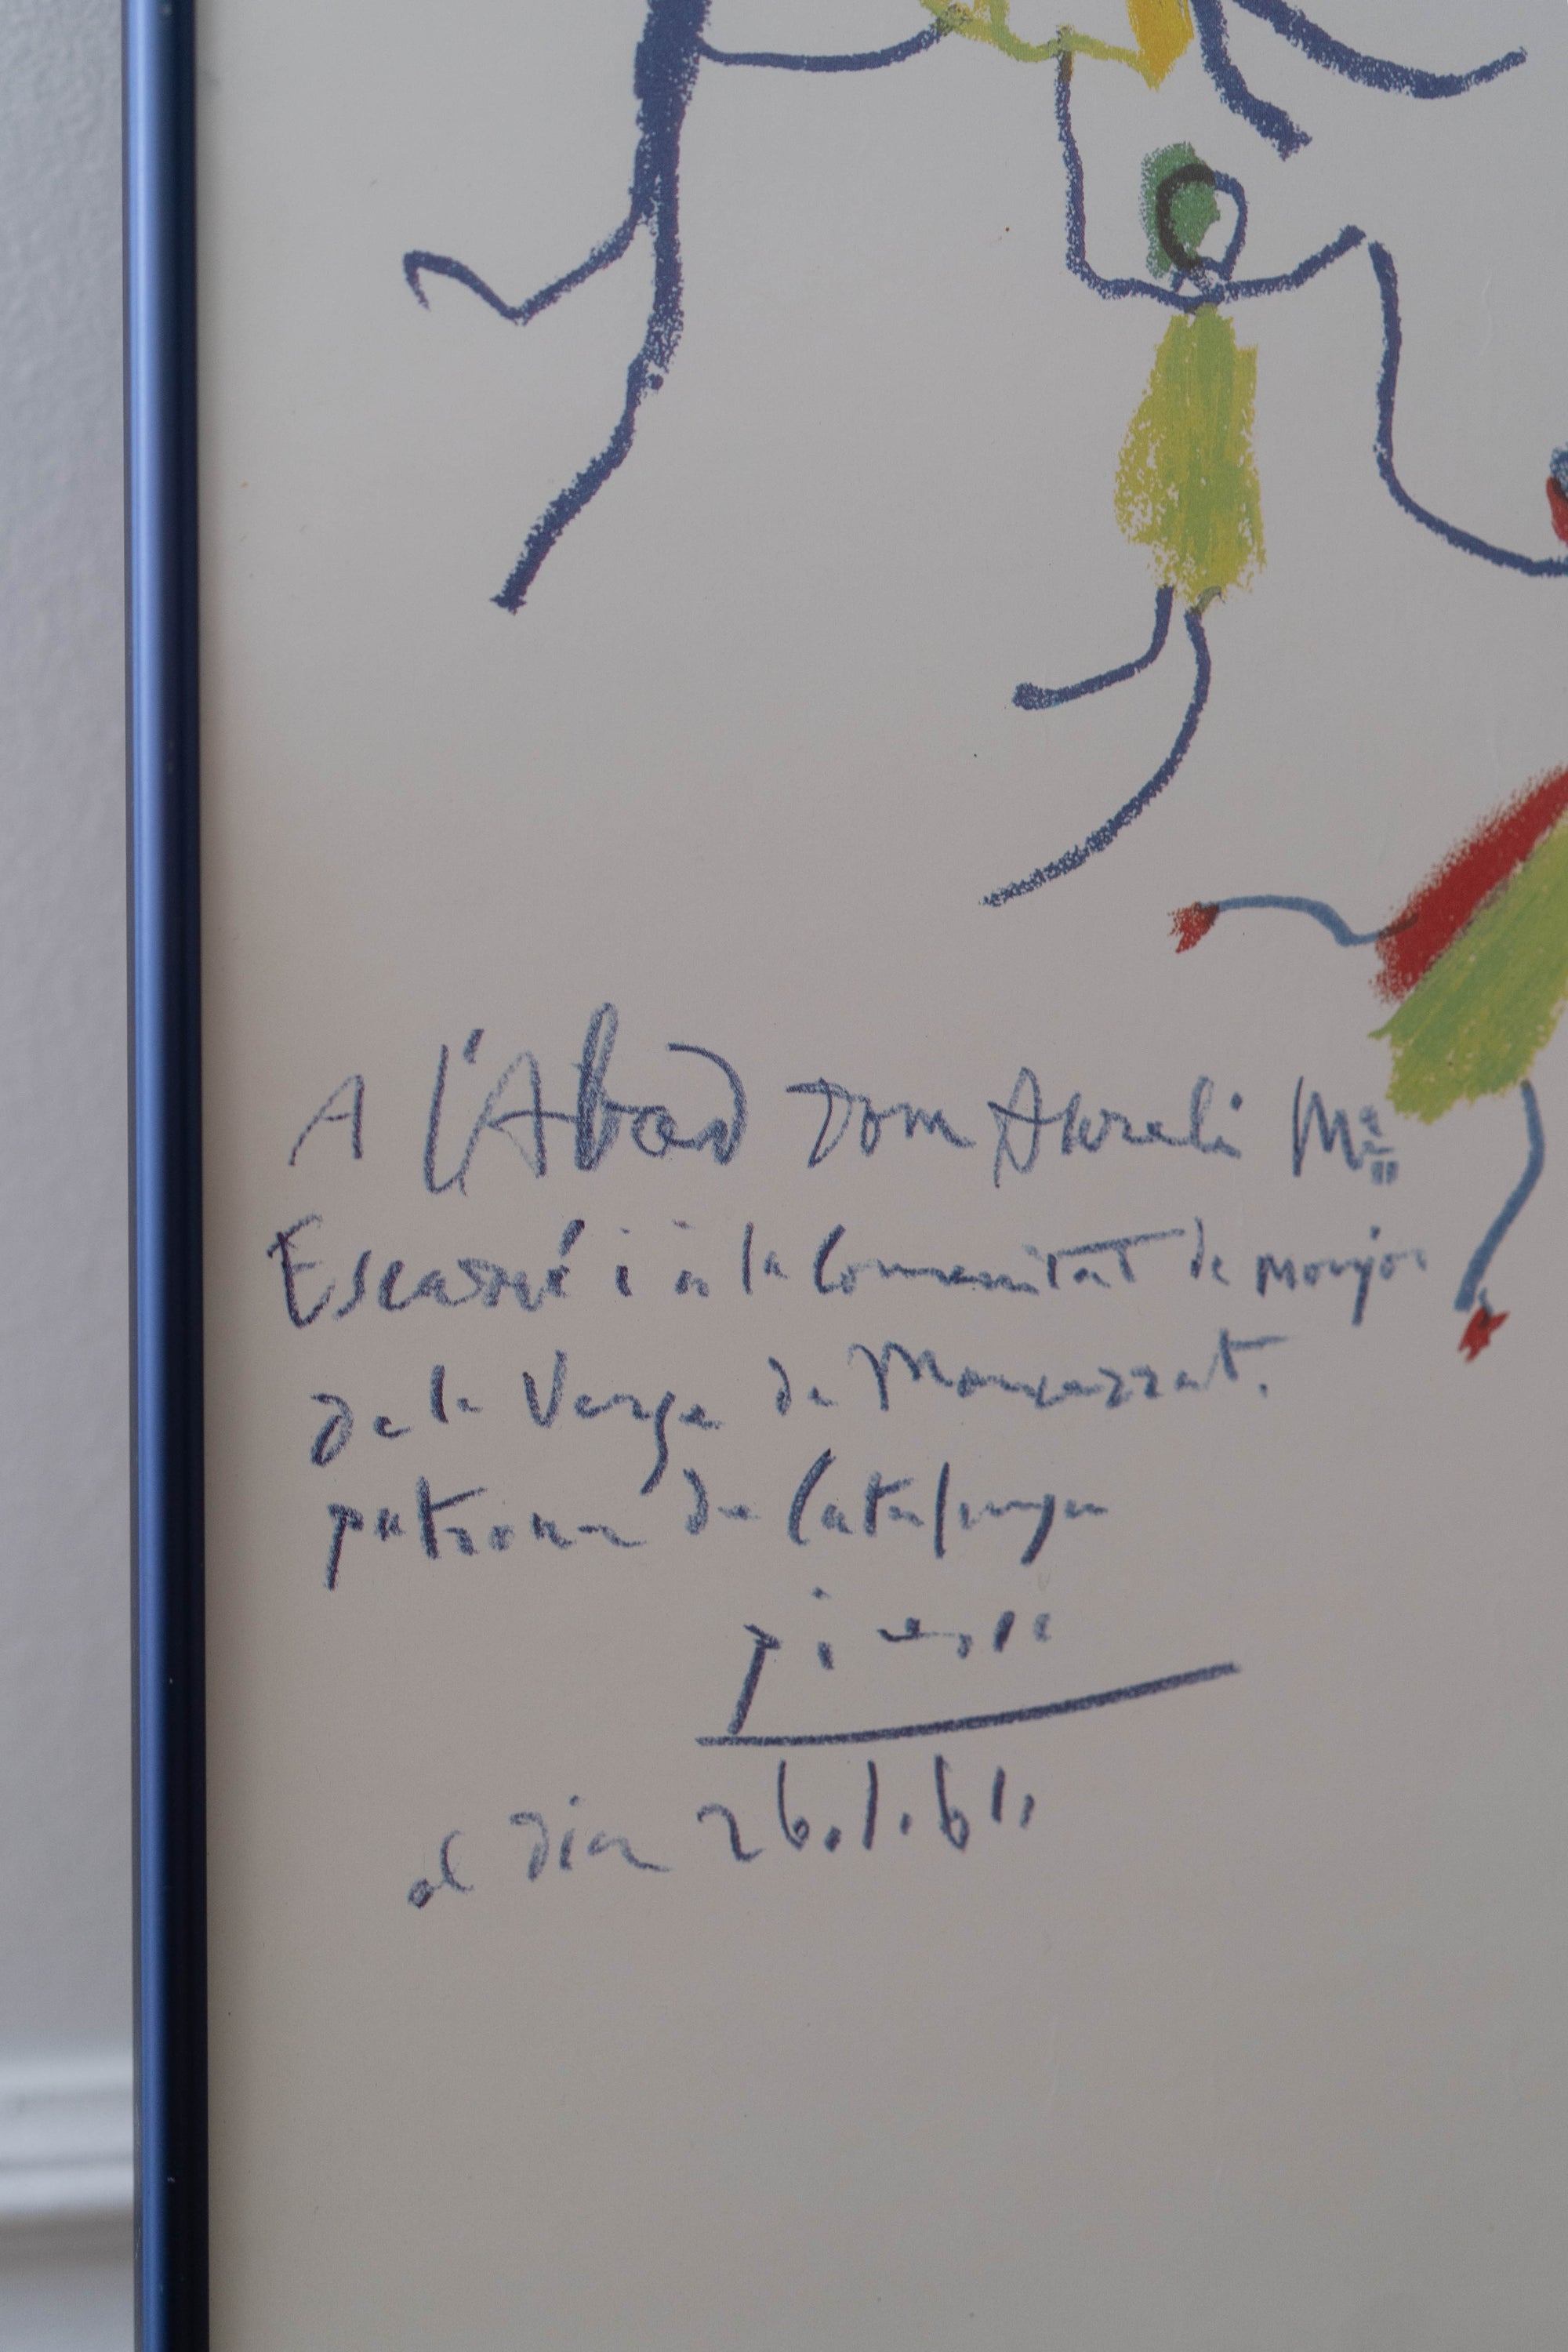 A l'Abad Dom Aureli Mª
Escarré i a la Comunitat de monjos
de la Verge de Monserrat.
patrona de Catalunya
Picasso
el dia 26.1.61.